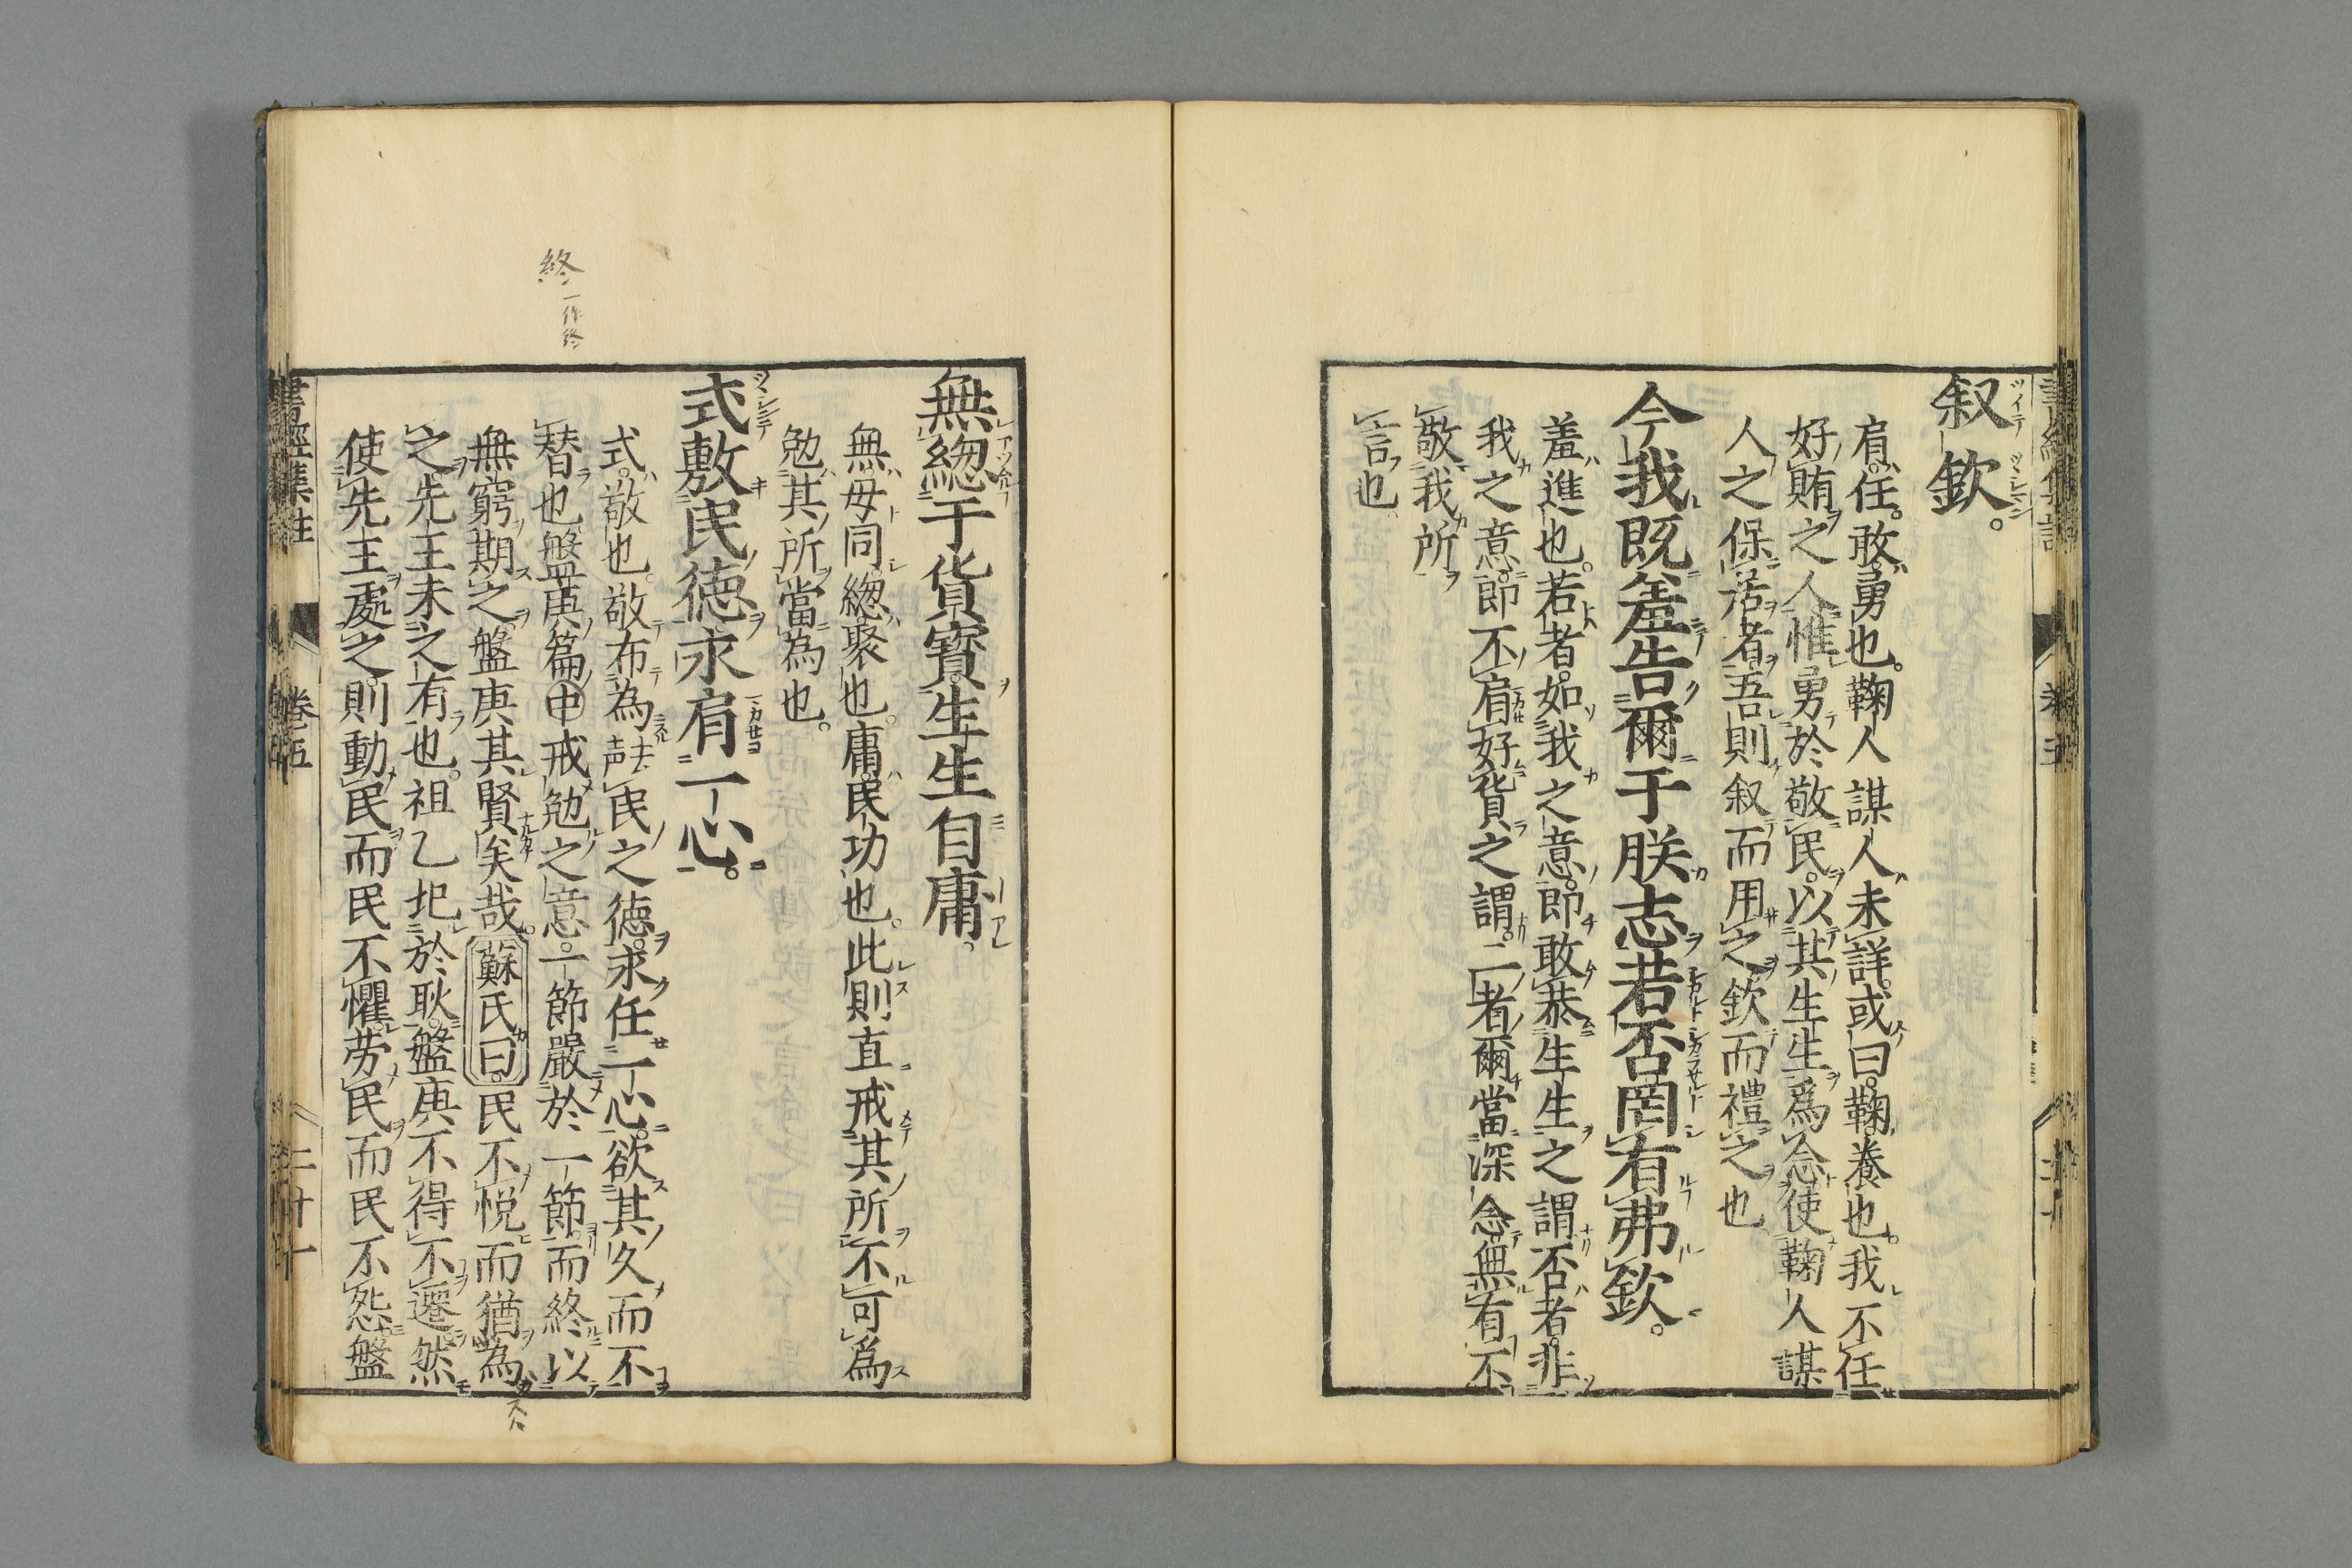 叙欽。
肩。任。敢。勇也。鞠人謀人未詳。或曰。鞠。養也。我不任
好賄之人。惟勇於敬民。以其生生爲念。使鞠人謀
人之保居者。吾則叙而用之。欽而禮之也
今我既羞告爾于朕志。若否罔有弗欽。
羞進也。若者。如我之意。即敢恭生生之謂。否者。非
我之意。即不肩好貨之謂。二者爾當深念。無有不
敬我所
言也
無緫于貨寶。生生自庸。
無。毋同。緫聚也。庸。民功也。此則直戒其所不可爲
勉其所當為也。
式敷民德。永肩一心。
式。敬也。敬布為民之德。永任一心。欲其久而不
替也。盤庚篇申戒勉之意。一節嚴於一節。而終以
無窮期之。盤庚其賢矣哉。蘇氏曰。民不悦而猶為
之。先王未之有也。祖乙圯於耿。盤庚不得不遷。然
使先王處之。則動民而民不懼。勞民而民不怨。盤
書經集註 卷五 二十一
終 一作終